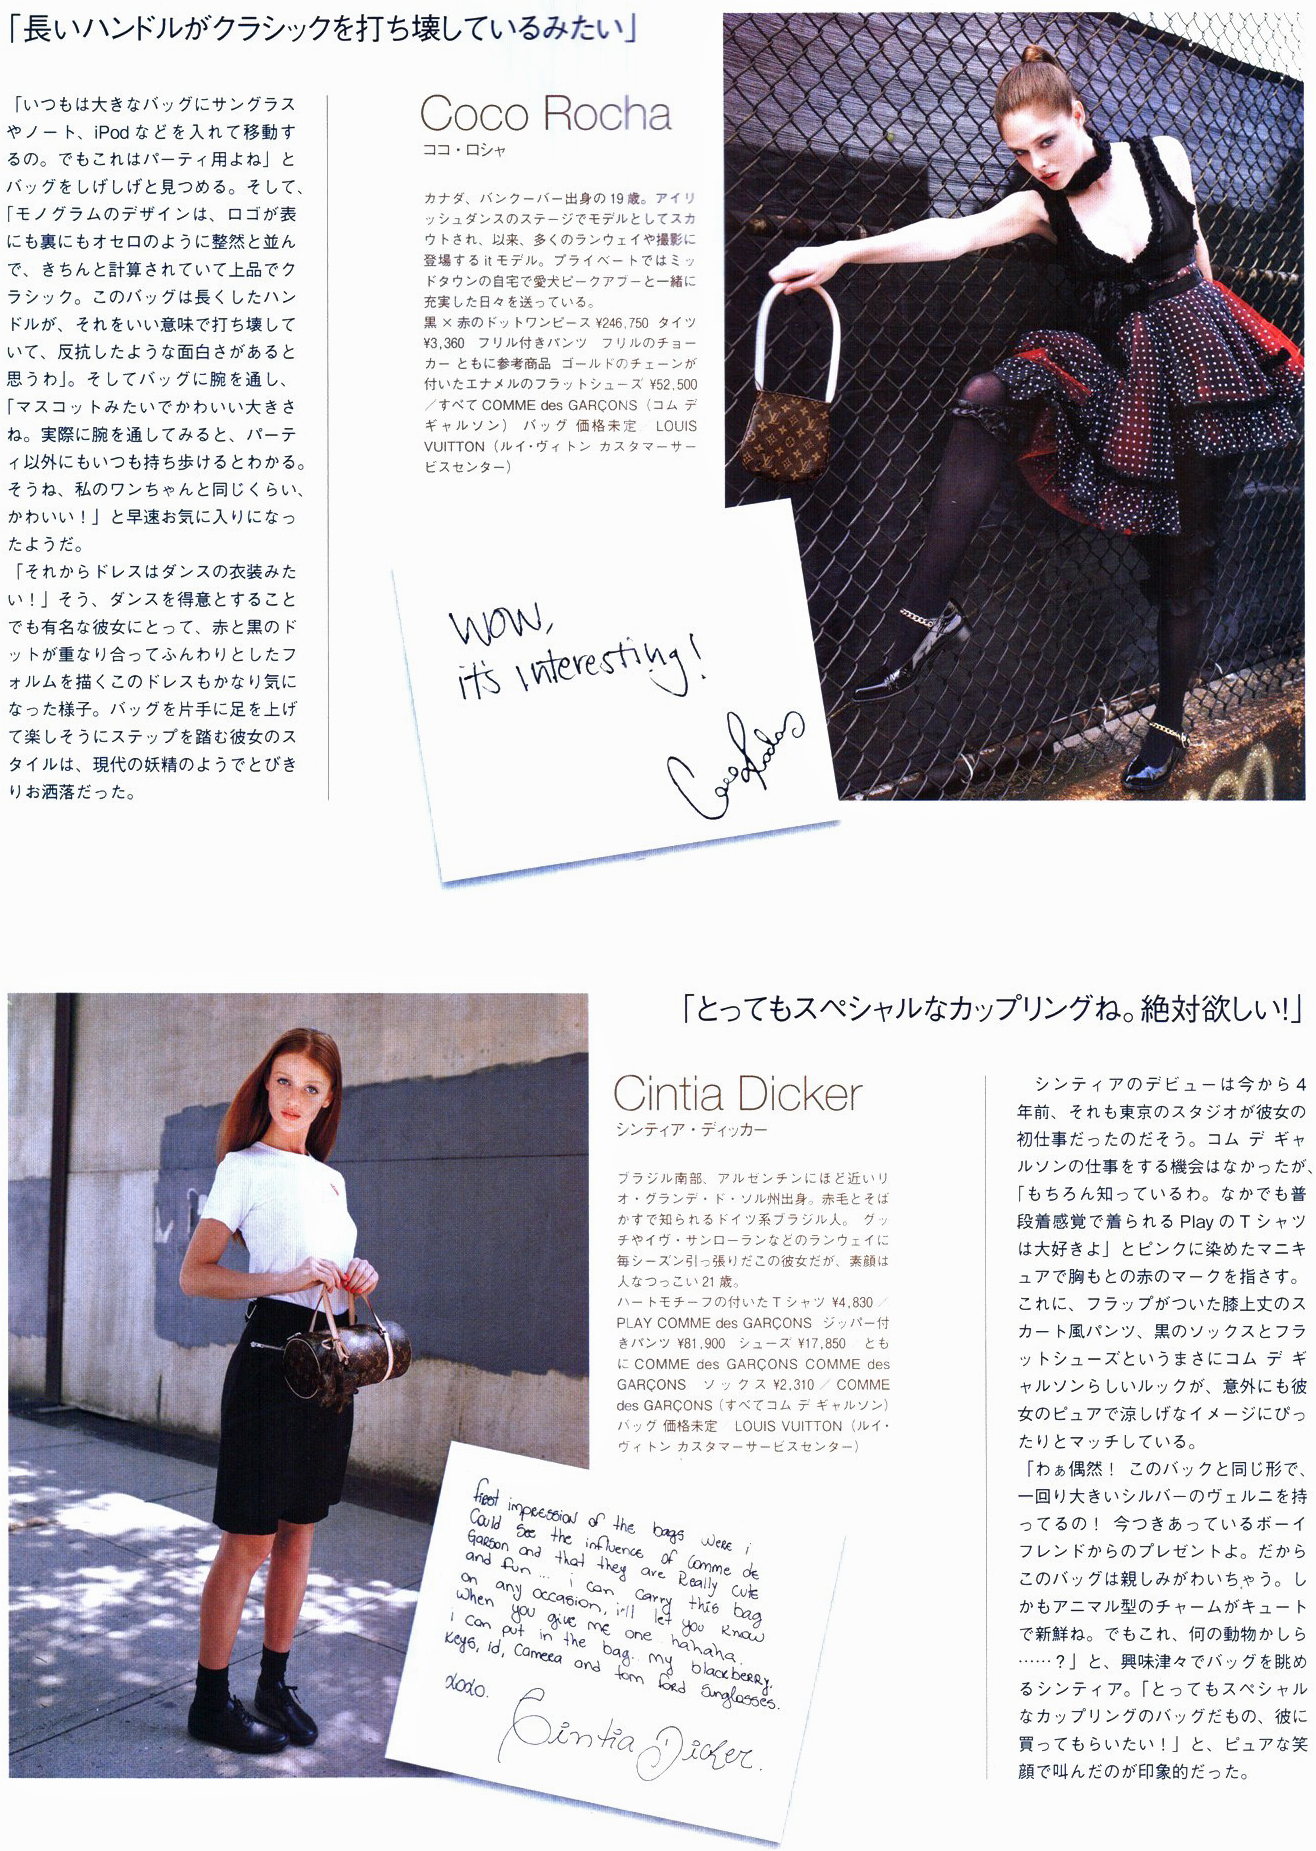 「長いハンドルがクラシックを打ち壊しているみたい」
「いつもは大きなバッグにサングラス
やノート、iPod などを入れて移動す
るの。でもこれはパーティ用よね」と
バッグをしげしげと見つめる。そして、
「モノグラムのデザインは、ロゴが表
にも裏にもオセロのように整然と並ん
で、きちんと計算されていて上品でク
ラシック。このバッグは長くしたハン
ドルが、それをいい意味で打ち壊して
いて、反抗したような面白さがあると
思うわ」。そしてバッグに腕を通し、
「マスコットみたいでかわいい大きさ
ね。実際に腕を通してみると、パーテ
ィ以外にもいつも持ち歩けるとわかる。
そうね、私のワンちゃんと同じくらい、
かわいい！」と早速お気に入りになっ
たようだ。
「それからドレスはダンスの衣装みた
い！」そう、ダンスを得意とすること
でも有名な彼女にとって、赤と黒のド
ットが重なり合ってふんわりとしたフ
ォルムを描くこのドレスもかなり気に
なった様子。バッグを片手に足を上げ
て楽しそうにステップを踏む彼女のス
タイルは、現代の妖精のようでとびき
りお洒落だった。
Coco Rocha
ココ・ロシャ
カナダ、バンクーバー出身の19歳。アイリ
ッシュダンスのステージでモデルとしてスカ
ウトされ、以来、多くのランウェイや撮影に
登場する it モデル。プライベートではミッ
ドタウンの自宅で愛犬ピークアブーと一緒に
充実した日々を送っている。
黒×赤のドットワンピース ¥246,750 タイツ
¥3,360 フリル付きパンツ フリルのチョー
カー ともに参考商品 ゴールドのチェーンが
付いたエナメルのフラットシューズ ¥52,500
／すべて COMME des GARÇONS（コム デ
ギャルソン） バッグ 価格未定／LOUIS
VUITTON（ルイ・ヴィトン カスタマーサー
ビスセンター）
WOW,
it's interesting!
Coco Rocha
「とってもスペシャルなカップリングね。絶対欲しい!」
Cintia Dicker
シンティア・ディッカー
ブラジル南部、アルゼンチンにほど近いリ
オ・グランデ・ド・ソル州出身。赤毛とそば
かすで知られるドイツ系ブラジル人。 グッ
チやイヴ・サンローランなどのランウェイに
毎シーズン引っ張りだこの彼女だが、素顔は
人なつっこい21歳。
ハートモチーフの付いたTシャツ ¥4,830／
PLAY COMME des GARÇONS ジッパー付
きパンツ ¥81,900 シューズ ¥17,850／とも
に COMME des GARÇONS COMME des
GARÇONS ソックス ¥2,310／COMME
des GARÇONS（すべてコム デ ギャルソン）
バッグ 価格未定／LOUIS VUITTON（ルイ・
ヴィトン カスタマーサービスセンター）
first impression of the bags were i
Could see the influence of Comme de
Garson and that they are Really cute
and fun... i can carry this bag
on any occasion, i'll let you know
when you give me one.. hahaha.
i can put in the bag.. my blackberry,
Keys, id, Camera and tom ford sunglasses.
xoxo.
Cintia Dicker.
シンティアのデビューは今から4
年前、それも東京のスタジオが彼女の
初仕事だったのだそう。コム デ ギャ
ルソンの仕事をする機会はなかったが、
「もちろん知っているわ。なかでも普
段着感覚で着られる Play のTシャツ
は大好きよ」とピンクに染めたマニキ
ュアで胸もとの赤のマークを指さす。
これに、フラップがついた膝上丈のス
カート風パンツ、黒のソックスとフラ
ットシューズというまさにコム デ ギ
ャルソンらしいルックが、意外にも彼
女のピュアで涼しげなイメージにぴっ
たりとマッチしている。
「わぁ偶然！ このバックと同じ形で、
一回り大きいシルバーのヴェルニを持
ってるの！ 今つきあっているボーイ
フレンドからのプレゼントよ。だから
このバッグは親しみがわいちゃう。し
かもアニマル型のチャームがキュート
で新鮮ね。でもこれ、何の動物かしら
……？」と、興味津々でバッグを眺め
るシンティア。「とってもスペシャル
なカップリングのバッグだもの、彼に
買ってもらいたい！」と、ピュアな笑
顔で叫んだのが印象的だった。